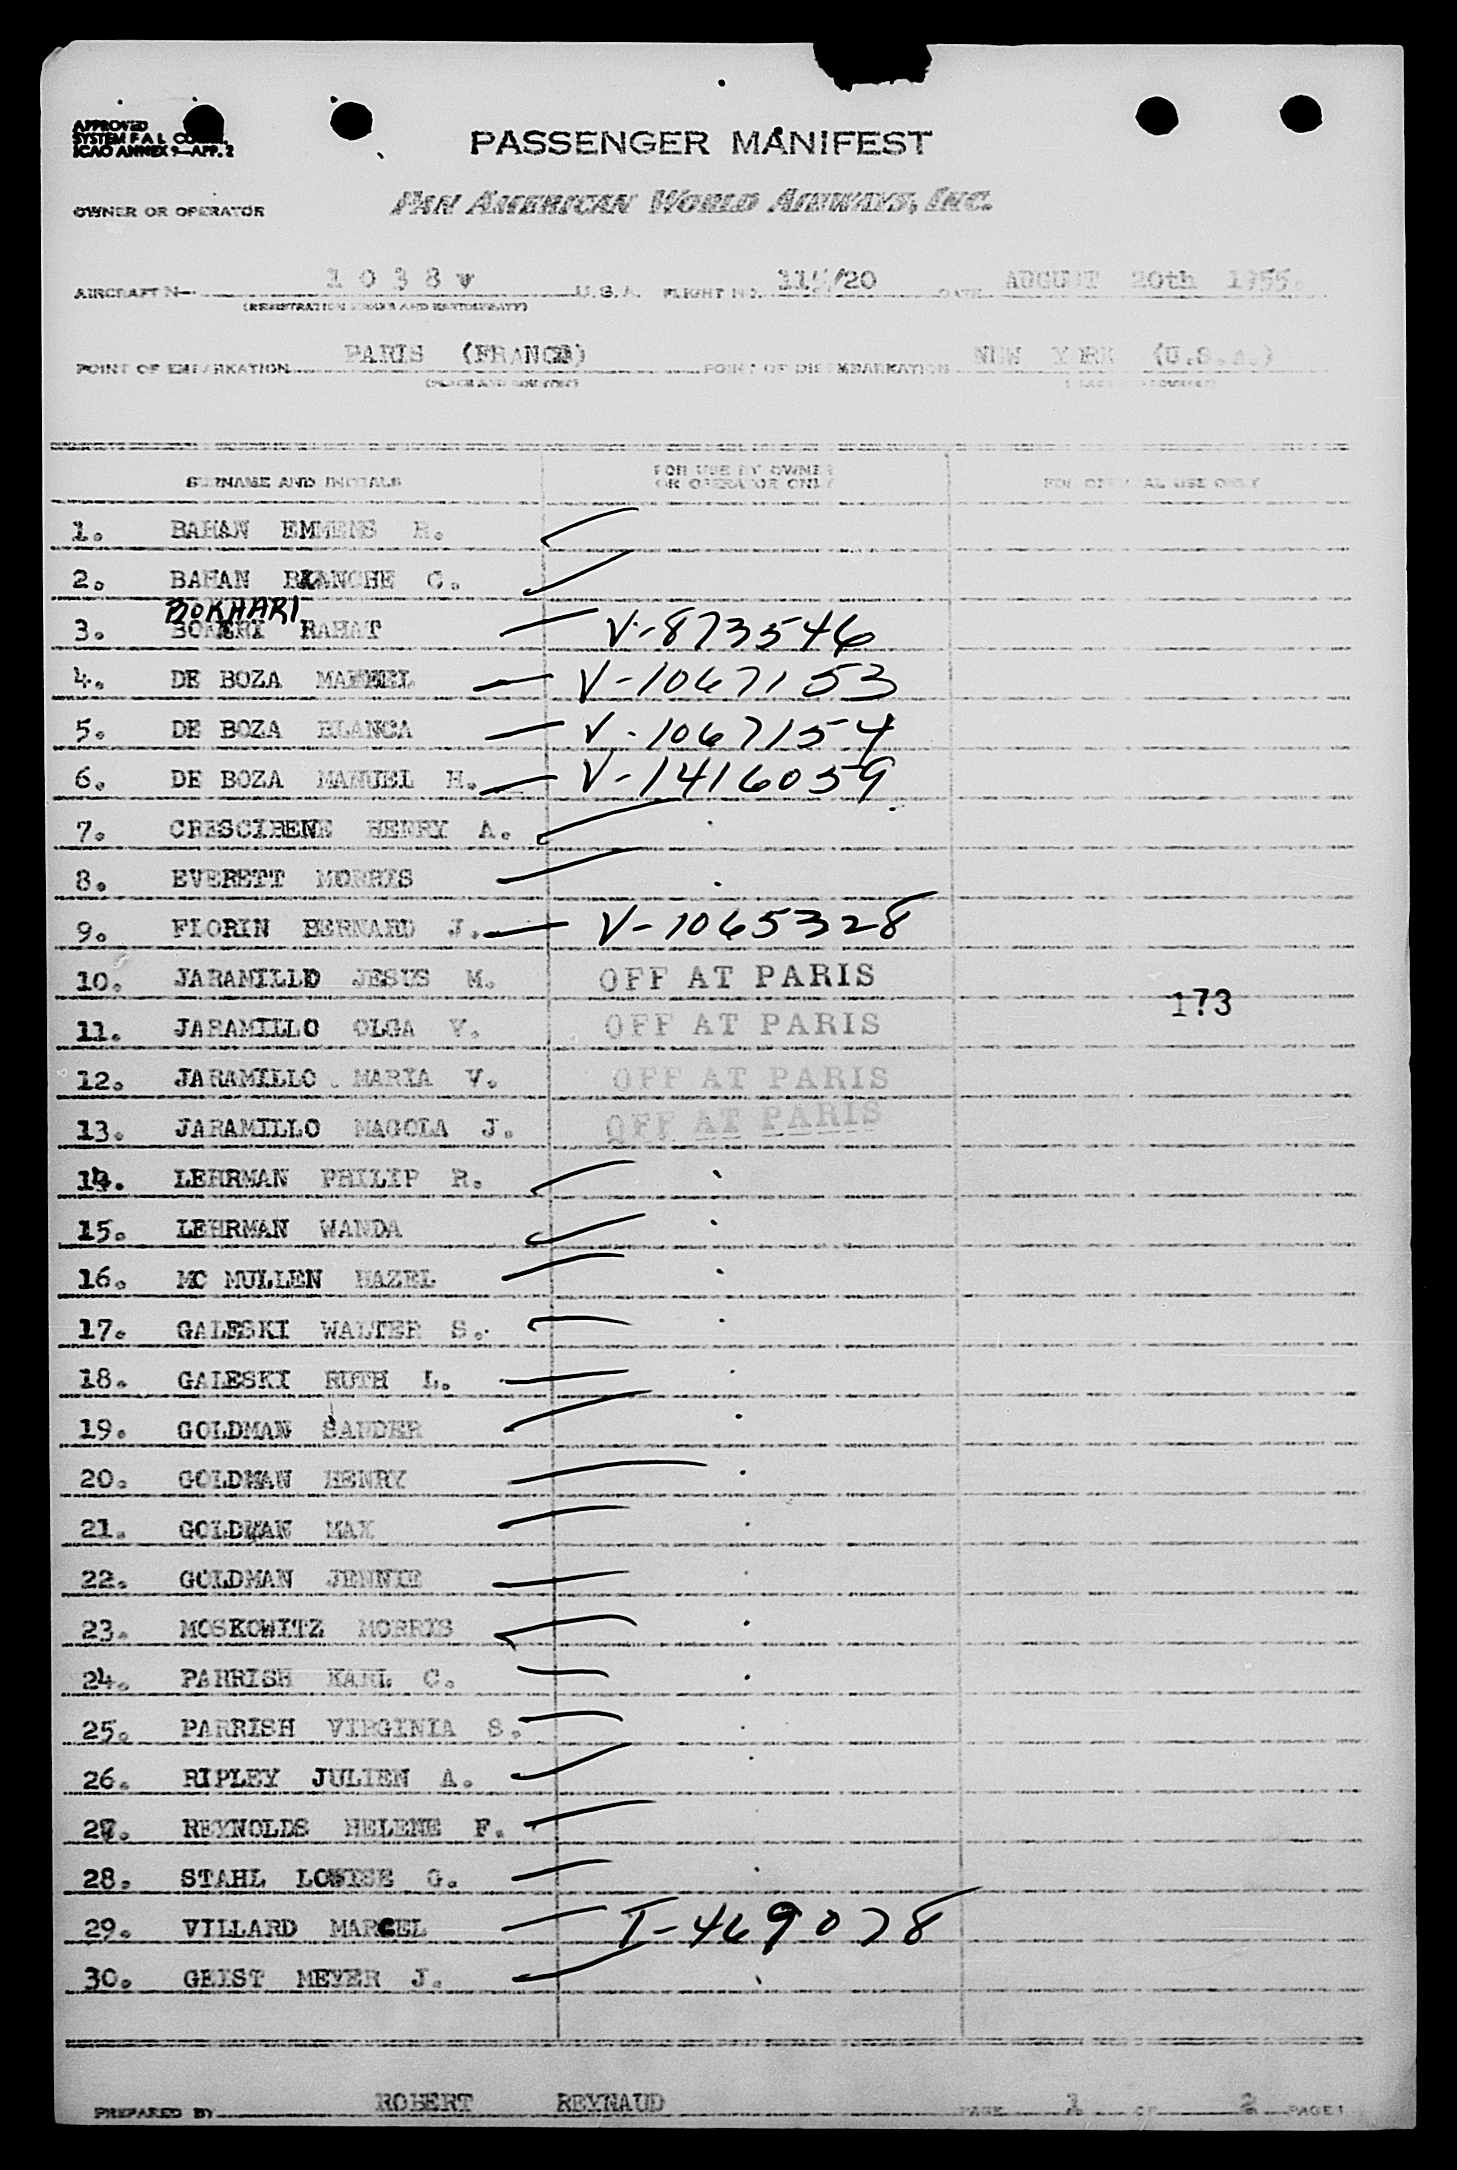 APPROVED
SYSTEM F A L
ICAO ANNEX 9-APP. 2
PASSENGER MANIFEST
OWNER OR OPERATOR PAN AMERICAN WORLD AIRWAYS, INC.
AIRCRAFT N- 1 0 3 8 v U.S.A. FLIGHT NO. /20 DATE AUGUST 20th 1955.
(REGISTRATION MARKS AND NATIONALITY)
POINT OF EMBARKATION PARIS (FRANCE) POINT OF DISEMBARKATION NEW YORK (U.S.A.)
(PLACE AND COUNTRY) (PLACE AND COUNTRY)
SURNAME AND INITIALS FOR USE BY OWNER OR OPERATOR ONLY FOR OFFICIAL USE ONLY
1. BAHAN EMMENS R.
2. BAHAN BLANCHE C.
BOKHARI
3. RAHAT V-873546
4. DE BOZA MANUEL V-1067153
5. DE BOZA BLANCA V-1067154
6. DE BOZA MANUEL H. V-1416059
7. CRESCIBENE HENRY A.
8. EVERETT MORRIS
9. FLORIN BERNARD J. V-1065328
10. JARAMILLO JESUS M. OFF AT PARIS
173
11. JARAMILLO OLGA V. OFF AT PARIS
12. JARAMILLO MARIA V. OFF AT PARIS
13. JARAMILLO MAGOLA J. OFF AT PARIS
14. LEHRMAN PHILIP R.
15. LEHRMAN WANDA
16. MC MULLEN HAZEL
17. GALESKI WALTER S.
18. GALESKI RUTH L.
19. GOLDMAN SANDER
20. GOLDMAN HENRY
21. GOLDMAN MAX
22. GOLDMAN JENNIE
23. MOSKOWITZ MORRIS
24. PARRISH KARL C.
25. PARRISH VIRGINIA S.
26. RIPLEY JULIEN A.
27. REYNOLDS HELENE F.
28. STAHL LOUISE G.
29. VILLARD MARCEL I-469078
30. GEIST MEYER J.
PREPARED BY ROBERT REYNAUD PAGE 1 OF 2 PAGES